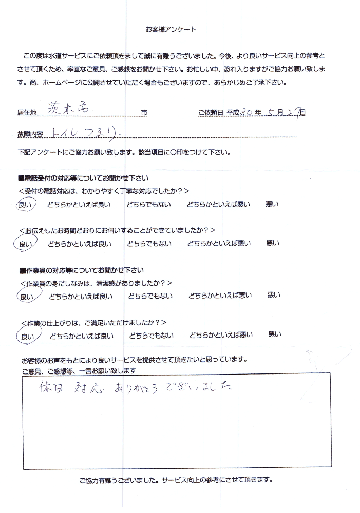 お客様アンケート
この度は水道サービスにご依頼頂きまして誠に有難うございました。今後、より良いサービス向上の参考と
させて頂くため、率直なご意見、ご感想をお聞かせ下さい。お忙しい中、恐れ入りますがご協力お願い致しま
す。尚、ホームページに公開させていただく場合もございますので、あらかじめご了承下さい。
居住地 茨木市 市 ご依頼日 平成30年 5月2日
故障内容 トイレつまり
下記アンケートにご協力お願い致します。該当項目に〇印をつけて下さい。
■電話受付の対応等についてお聞かせ下さい
<受付の電話対応は、わかりやすく丁寧な対応でしたか?>
良い どちらかといえば良い どちらでもない どちらかといえば悪い 悪い
<お伝えしたお時間どおりにお伺いすることができていましたか?>
良い どちらかといえば良い どちらでもない どちらかといえば悪い 悪い
■作業員の対応等についてお聞かせ下さい
<作業員の身だしなみは、清潔感がありましたか?>
良い どちらかといえば良い どちらでもない どちらかといえば悪い 悪い
<作業の仕上がりは、ご満足いただけましたか?>
良い どちらかといえば良い どちらでもない どちらかといえば悪い 悪い
お客様のお声をもとにより良いサービスを提供させて頂きたいと思っています。
ご意見、ご感想等、一言お願い致します
休日 対応 ありがとうございました
ご協力有難うございました。サービス向上の参考にさせて頂きます。